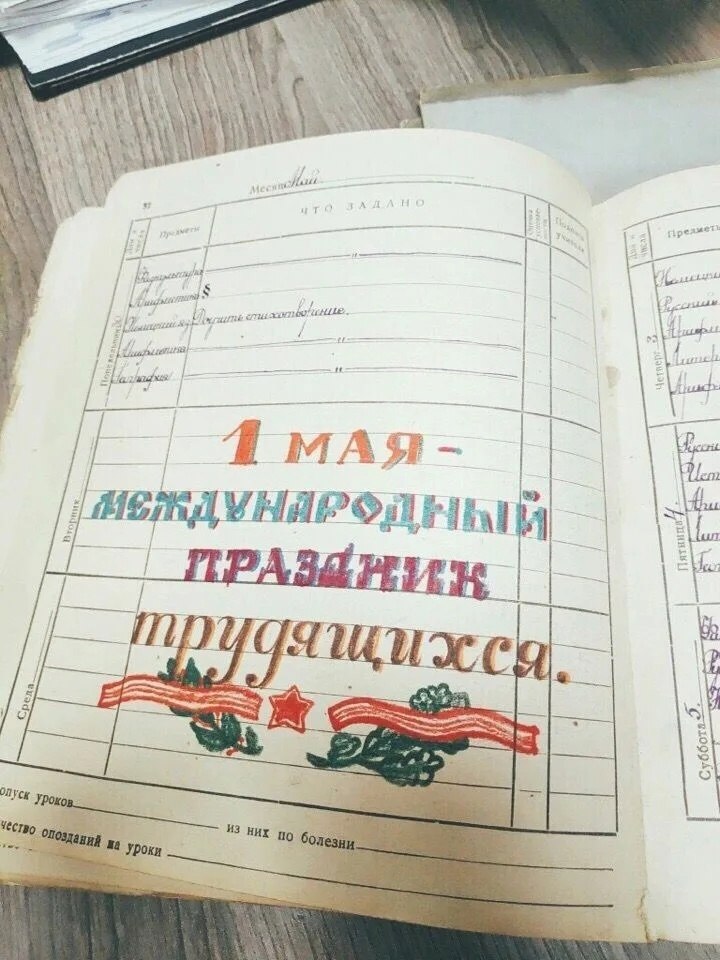 37
Месяц Май
Дни и числа
Предметы
ЧТО ЗАДАНО
Оценка успеваемости
Подпись учителя
Понедельник
Физкультура "
Арифметика §
Немецкий яз. Доучить стихотворение.
Арифметика "
География "
Вторник
1 МАЯ -
МЕЖДУНАРОДНЫЙ
ПРАЗДНИК
трудящихся.
Среда
опуск уроков
из них по болезни
чество опозданий на уроки
Дни и числа
Предметы
Четверг 3
Немецки
Русский
Арифм
Литер
Арифм
Пятница 4.
Русски
Ист
Ариф
Лит
Суббота 5.